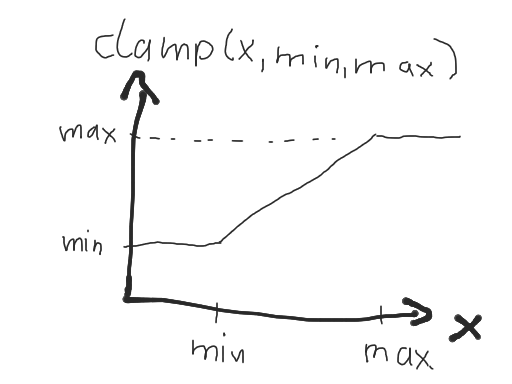 clamp(x, min, max)
max
min
x
min
max